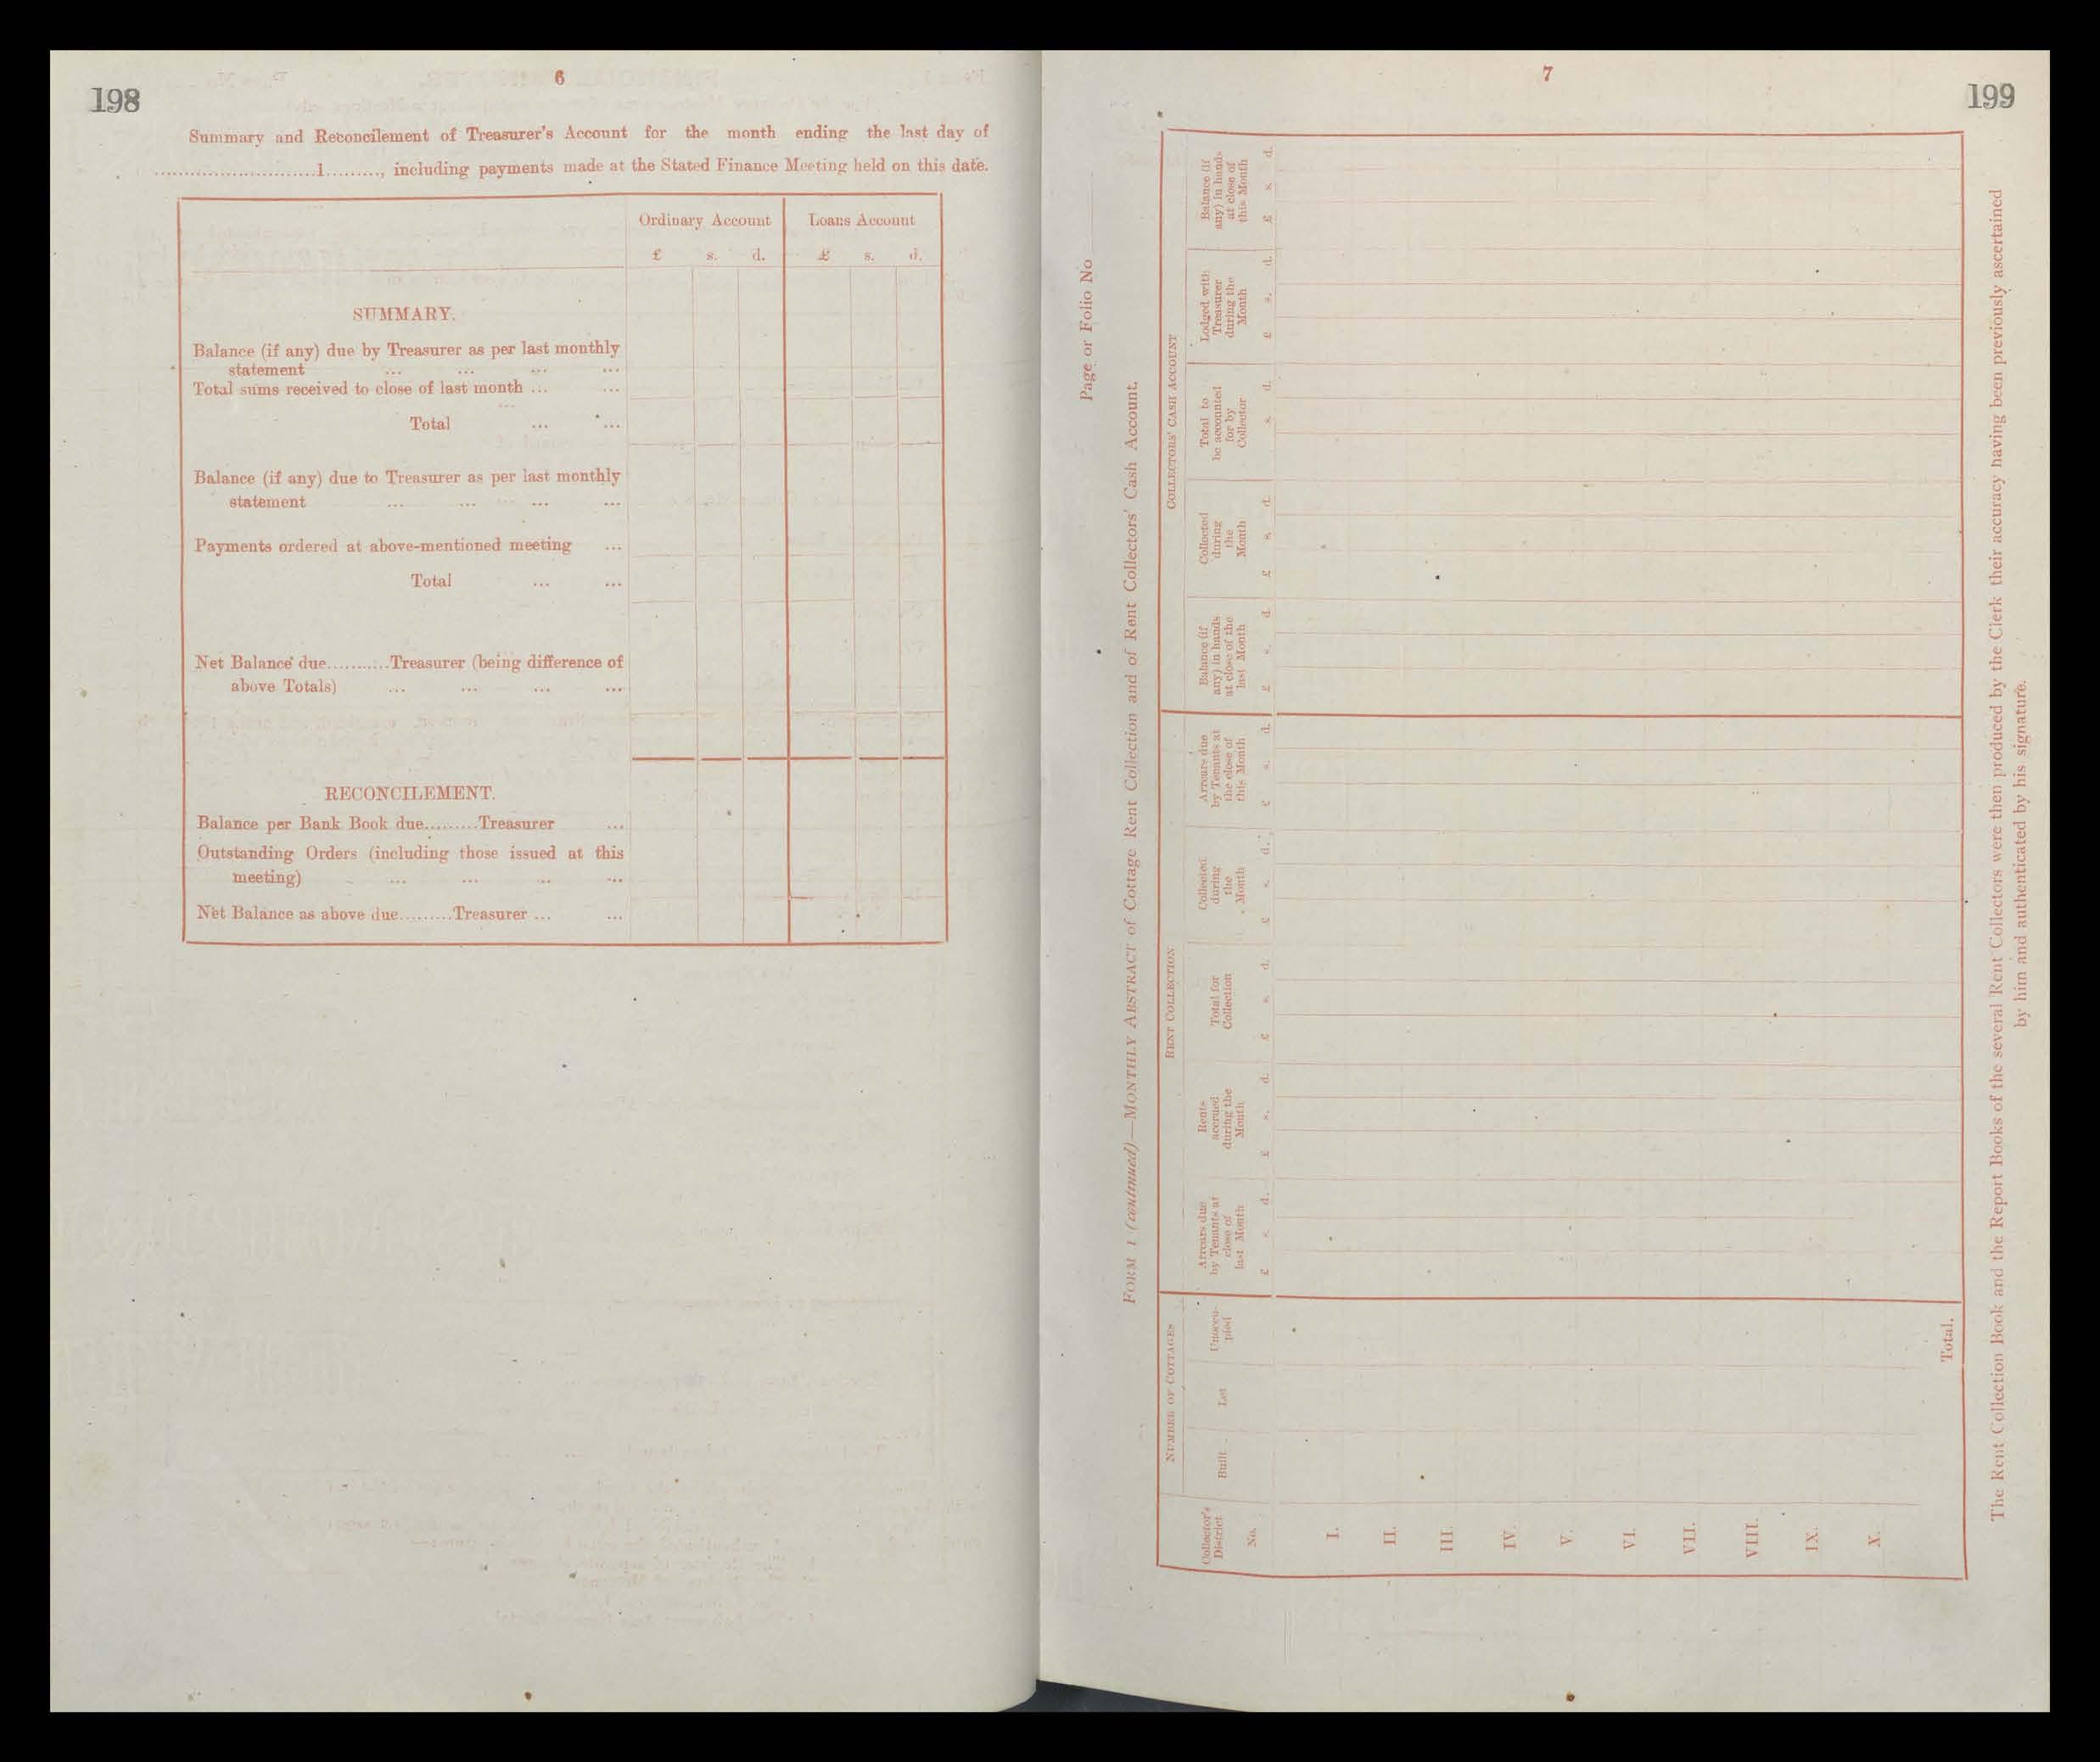 198
6
Summary and Reconcilement of Treasurer's Account for the month ending the last day of
............................1.........., including payments made at the Stated Finance Meeting held on this date.
Ordinary Account Loans Account
£ s. d. £ s. d.
SUMMARY.
Balance (if any) due by Treasurer as per last monthly
statement ... ... ... ...
Total sums received to close of last month ... ...
Total ... ...
Balance (if any) due to Treasurer as per last monthly
statement ... ... ... ...
Payments ordered at above-mentioned meeting ...
Total ... ...
Net Balance due...........Treasurer (being difference of
above Totals) ... ... ... ...
RECONCILEMENT.
Balance per Bank Book due.........Treasurer ...
Outstanding Orders (including those issued at this
meeting) ... ... ... ...
Net Balance as above due.........Treasurer ... ...
7
199
Page or Folio No
FORM 1 (continued)—MONTHLY ABSTRACT of Cottage Rent Collection and of Rent Collectors' Cash Account.
NUMBER OF COTTAGES
RENT COLLECTION
COLLECTORS' CASH ACCOUNT
Collector's
District
No.
Built
Let
Unoccu-
pied
Arrears due
by Tenants at
close of
last Month
£ s. d.
Rents
accrued
during the
Month
£ s. d.
Total for
Collection
£ s. d.
Collected
during
the
Month
£ s. d.
Arrears due
by Tenants at
the close of
this Month
£ s. d.
Balance (if
any) in hands
at close of the
last Month
£ s. d.
Collected
during
the
Month
£ s. d.
Total to
be accounted
for by
Collector
£ s. d.
Lodged with
Treasurer
during the
Month
£ s. d.
Balance (if
any) in hands
at close of
this Month
£ s. d.
I.
II.
III.
IV.
V.
VI.
VII.
VIII.
IX.
X.
Total.
The Rent Collection Book and the Report Books of the several Rent Collectors were then produced by the Clerk their accuracy having been previously ascertained
by him and authenticated by his signature.